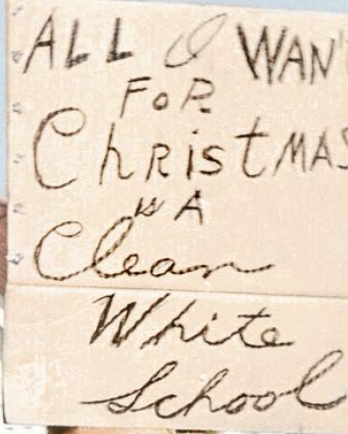 ALL I WAN'
FOR
ChRistMAS
is A
Clean
White
School